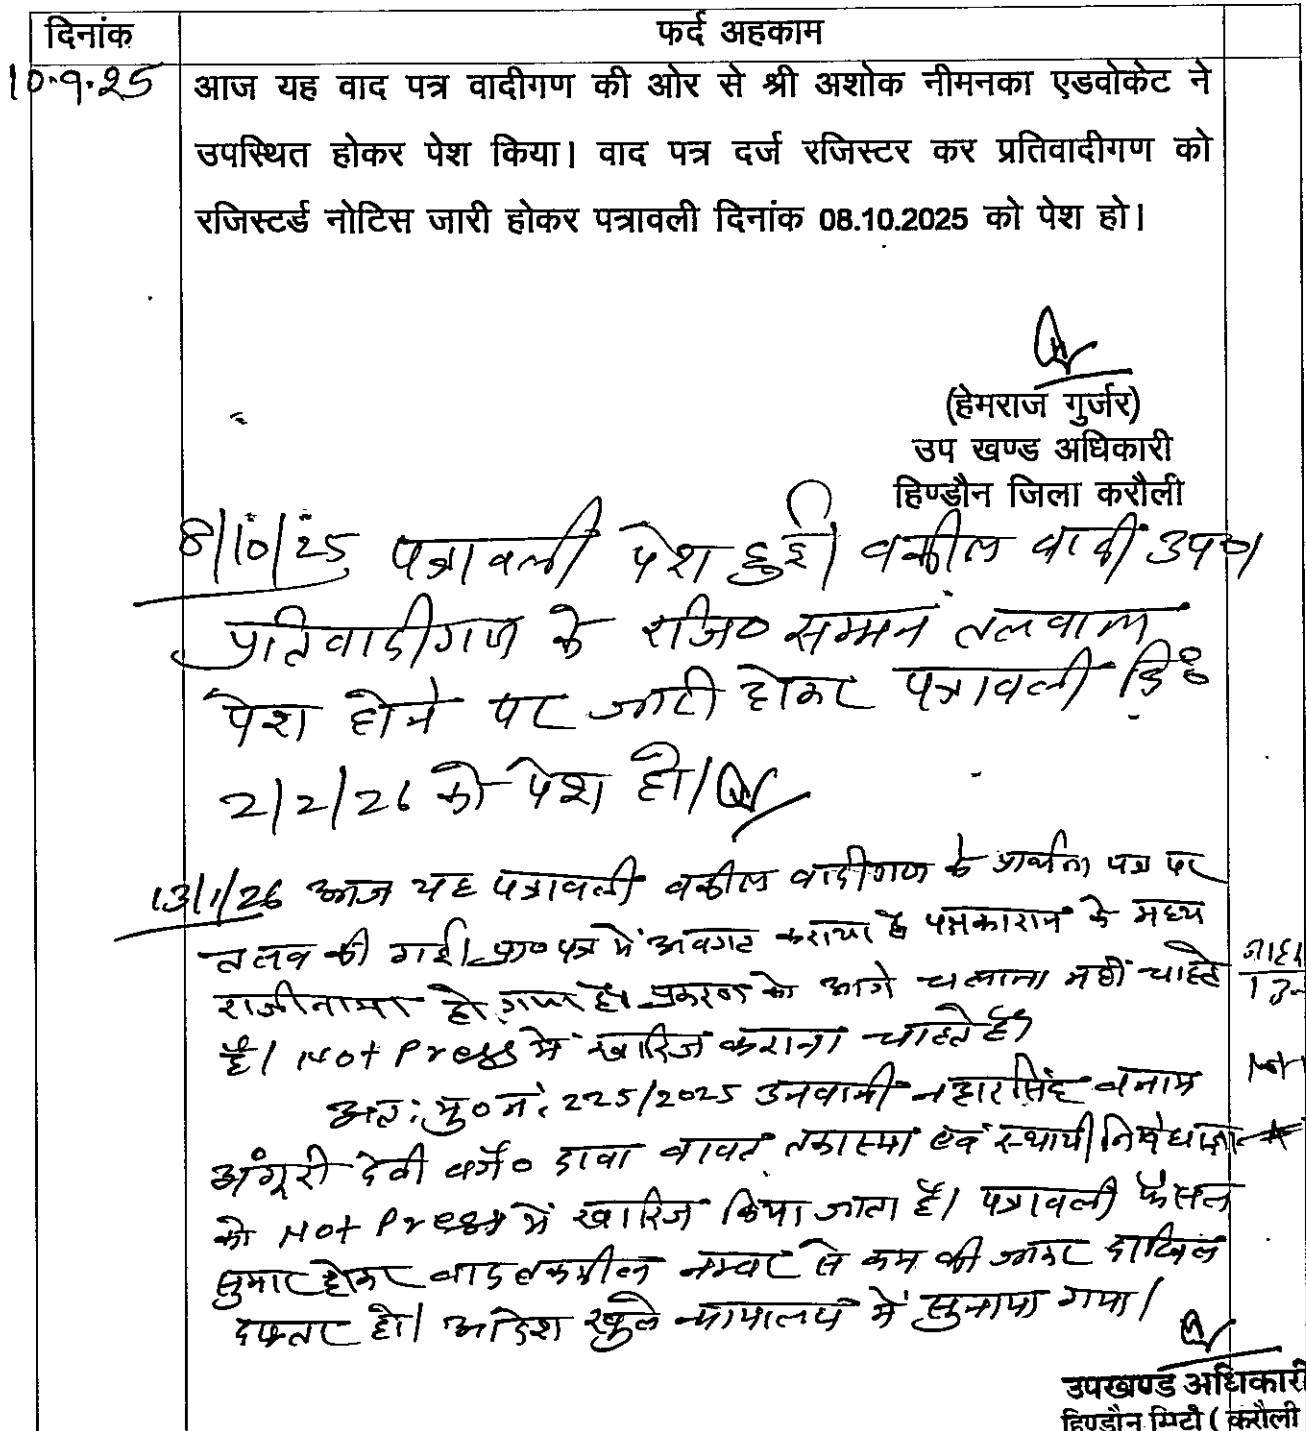 दिनांक
फर्द अहकाम
10.9.25
आज यह वाद पत्र वादीगण की ओर से श्री अशोक नीमनका एडवोकेट ने
उपस्थित होकर पेश किया। वाद पत्र दर्ज रजिस्टर कर प्रतिवादीगण को
रजिस्टर्ड नोटिस जारी होकर पत्रावली दिनांक 08.10.2025 को पेश हो।
(हेमराज गुर्जर)
उप खण्ड अधिकारी
हिण्डौन जिला करौली
8/10/25 पत्रावली पेश हुई। वकील वादी उप०।
प्रतिवादीगण के रजि० सम्मन तलवाना
पेश होने पर जारी होकर पत्रावली दि०
2/2/26 को पेश हो।
13/1/26 आज यह पत्रावली वकील वादीगण के प्रार्थना पत्र पर
तलव की गई। प्रा०पत्र में अवगत कराया है पक्षकारान के मध्य
राजीनामा हो गया है। प्रकरण को आगे चलाना नहीं चाहते
है। Not Press में खारिज कराना चाहते है।
अतः मु० नं. 225/2025 उनवानी नहारसिंह वनाम
अंगूरी देवी वगै० दावा वावत तकास्मा एवं स्थायी निषेधाज्ञा
को Not Press में खारिज किया जाता है। पत्रावली फैसल
सुमार होकर वाद तकमील नम्वर से कम की जाकर दाखिल
दफ्तर हो। आदेश खुले न्यायालय में सुनाया गया।
उपखण्ड अधिकारी
हिण्डौन सिटी (करौली